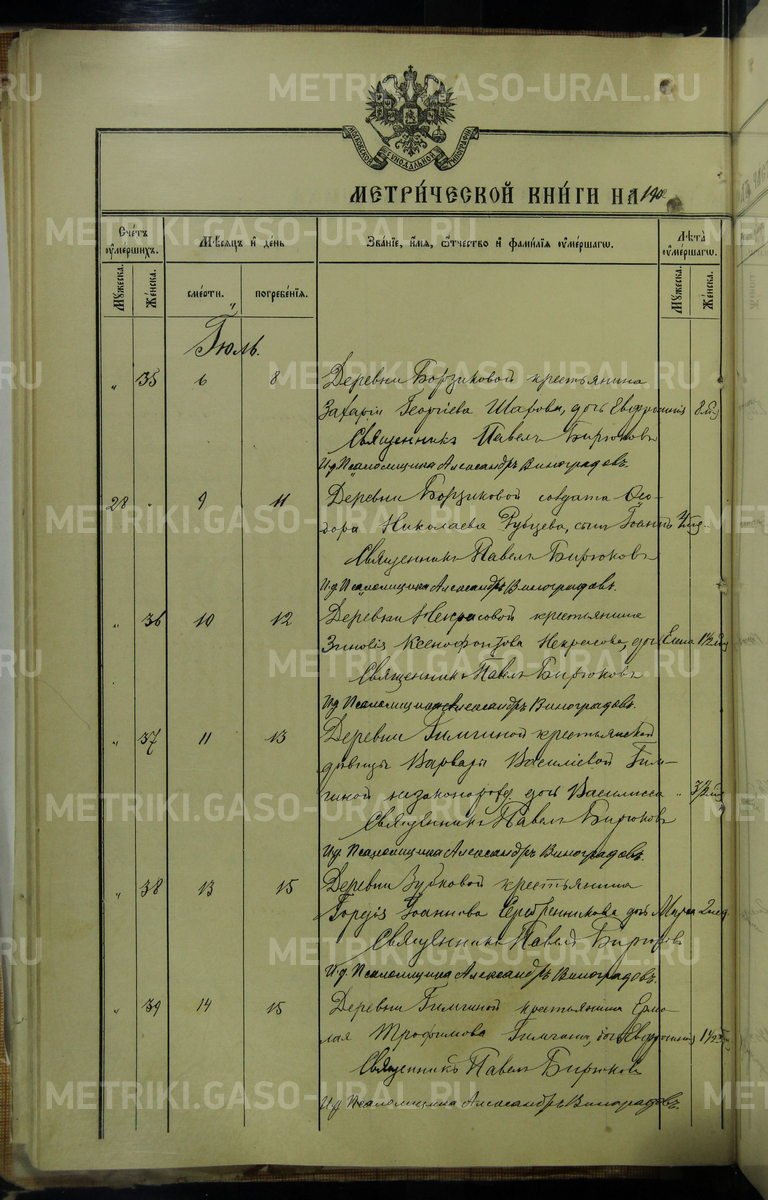 METRIKI.GASO-URAL.RU
МОСКОВСКОЙ СѴНОДАЛЬНОЙ ТИПОГРАФІИ
МЕТРИ́ЧЕСКОЙ КНИ́ГИ НА 190
Сче́тъ ᲂу҆ме́ршихъ. Мѣ́сяцъ и҆ де́нь Зва́нїе, и҆́мя, ѻ҆́тчество и҆ фами́лїя ᲂу҆ме́ршагѡ. Лѣ́та ᲂу҆ме́ршагѡ.
Мꙋ́жеска. Же́нска. сме́рти. погребе́нїя. Мꙋ́жеска. Же́нска.
Іюль.
„ 35 6 8 Деревни Борзиковой крестьянина
Захарія Георгіева Шарова, дочь Евфросинія
Священникъ Павелъ Бирюковъ
И д Псаломщика Александръ Виноградовъ.
28 „ 9 11 Деревни Борзиковой солдата Ѳео-
дора Николаева Рубцева, сынъ Іоаннъ
Священникъ Павелъ Бирюковъ
И д Псаломщика Александръ Виноградовъ.
„ 36 10 12 Деревни Некрасовой крестьянина
Зиновія Ксенофонтова Некрасова, дочь Елена 1½
Священникъ Павелъ Бирюковъ
И д Псаломщика Александръ Виноградовъ.
„ 37 11 13 Деревни Гилигиной крестьянской
дѣвицы Варвары Василіевой
незаконорожд дочь Василисса „
Священникъ Павелъ Бирюковъ
И д Псаломщика Александръ Виноградовъ.
„ 38 13 15 Деревни Зубковой крестьянина
Гордія Іоаннова Серебренникова дочь Марія
Священникъ Павелъ Бирюковъ
И д Псаломщика Александръ Виноградовъ.
„ 39 14 15 Деревни крестьянина Ермо-
лая Трофимова дочь Евфросинія 1½
Священникъ Павелъ Бирюковъ
И д Псаломщика Александръ Виноградовъ.